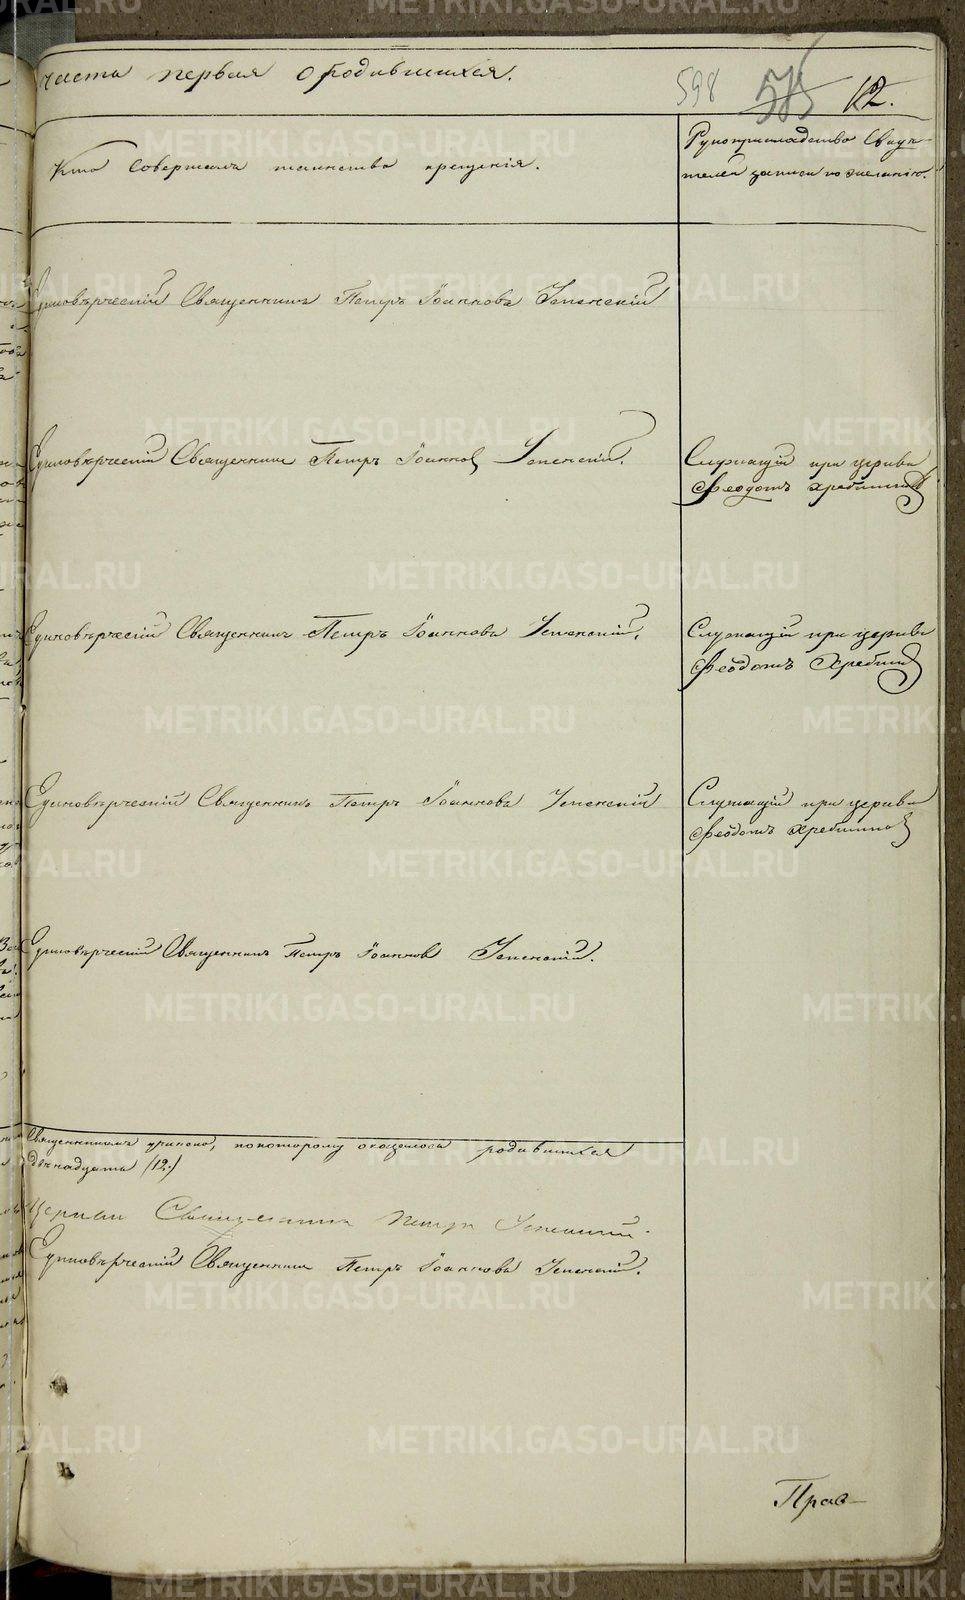 часть первая о родившихся.
598 585 12.
Кто совершалъ таинство крещенія.
Рукоприкладство Свидѣ-
телей записи по желанію.
Единовѣрческій Священникъ Петръ Іоанновъ Успенскій
Единовѣрческій Священникъ Петръ Іоанновъ Успенскій.
Служащій при церкви
Феодотъ Хребтиковъ
Единовѣрческій Священникъ Петръ Іоанновъ Успенскій.
Служащій при церкви
Феодотъ
Единовѣрческій Священникъ Петръ Іоанновъ Успенскій
Служащій при церкви
Феодотъ
Единовѣрческій Священникъ Петръ Іоанновъ Успенскій.
Священникомъ по которому оказалось родившихся
двѣнадцать (12.)
Церкви Священникъ Петръ Успенскій.
Единовѣрческій Священникъ Петръ Іоанновъ Успенскій.
Прав-
METRIKI.GASO-URAL.RU